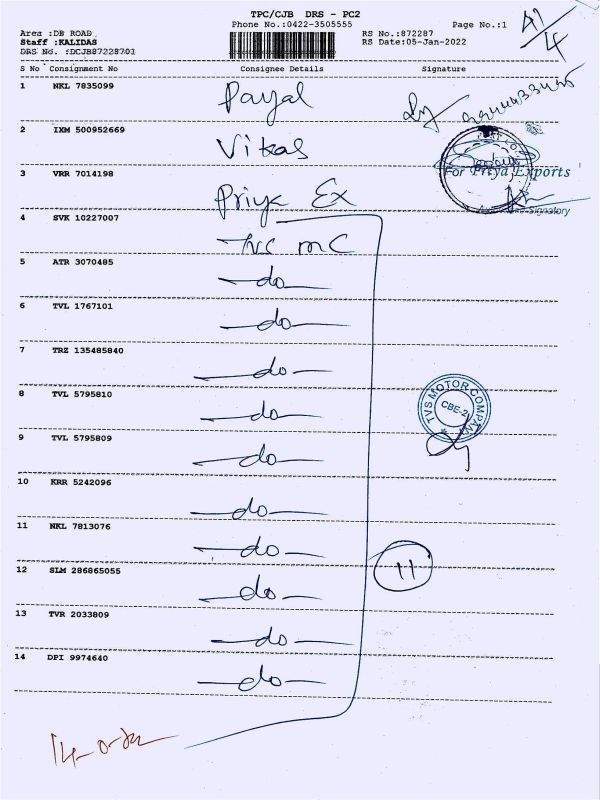 TPC/CJB DRS - PC2
Phone No.:0422-3505555
Page No.:1
Area :DB ROAD
RS No.:872287
Staff :KALIDAS
RS Date:05-Jan-2022
DRS No. :DCJB87228701
S No Consignment No Consignee Details Signature
1 NKL 7835099 Payal
2 IXM 500952669 Vikas
3 VRR 7014198 Priya Ex
For Priya Exports
Signatory
4 SVK 10227007 TVS MC
5 ATR 3070485 -do-
6 TVL 1767101 -do-
7 TRZ 135485840 -do-
8 TVL 5795810 -do-
TVS MOTOR COMPANY
CBE-2
9 TVL 5795809 -do-
10 KRR 5242096 -do-
11 NKL 7813076 -do-
11
12 SLM 286865055 -do-
13 TVR 2033809 -do-
14 DPI 9974640 -do-